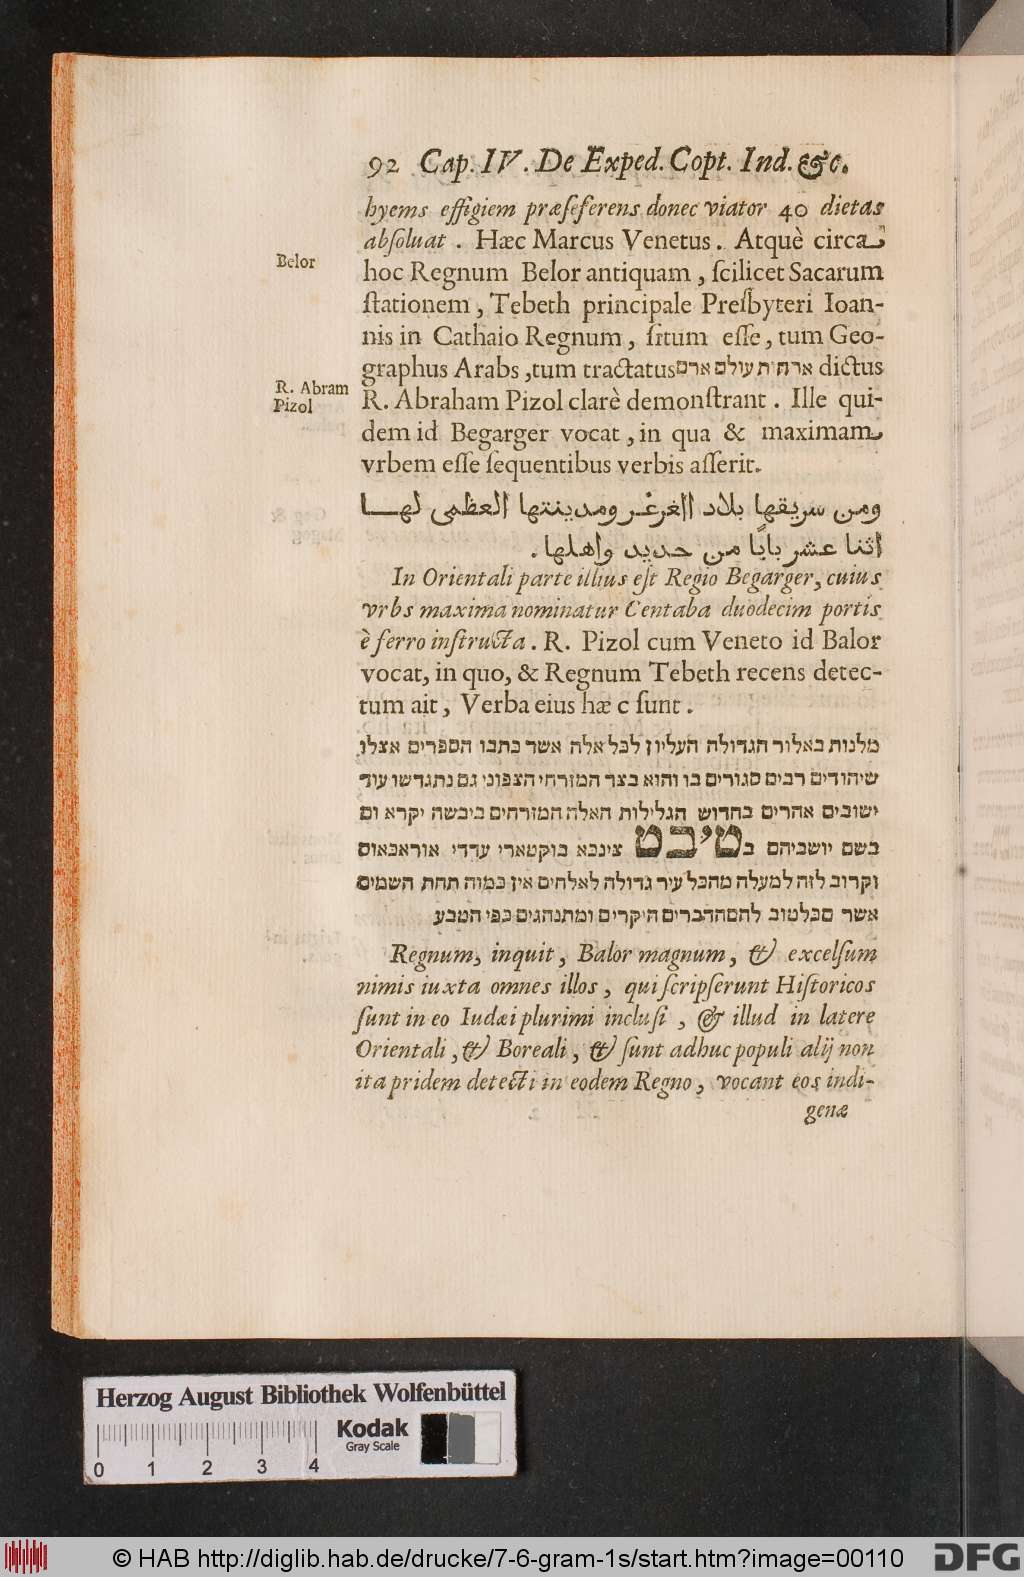 92 Cap. IV. De Exped. Copt. Ind. &c.
hyems effigiem præſeferens donec viator 40 dietas
abſoluat . Hæc Marcus Venetus. Atquè circa
Belor
hoc Regnum Belor antiquam , ſcilicet Sacarum
ſtationem , Tebeth principale Preſbyteri Ioan-
nis in Cathaio Regnum , ſitum eſſe , tum Geo-
graphus Arabs ,tum tractatus ארחות עולם ארם dictus
R. Abram
Pizol
R. Abraham Pizol clarè demonſtrant . Ille qui-
dem id Begarger vocat , in qua & maximam
vrbem eſſe ſequentibus verbis aſſerit.
ومن سريقها بلاد الغرغر ومدينتها العظمى لها
اثنا عشر بابًا من حديد واهلها .
In Orientali parte illius eſt Regio Begarger, cuius
vrbs maxima nominatur Centaba duodecim portis
è ferro inſtructa . R. Pizol cum Veneto id Balor
vocat, in quo, & Regnum Tebeth recens detec-
tum ait , Verba eius hæ c ſunt .
מלנות באלור הגדולה העליון לכל אלה אשר כתבו הספרים אצלו
שיהודים רבים סגורים בו והוא בצד המזרחי הצפוני גם נתגדשו עוד
ישובים אהרים בחדוש הגלילות האלה המזרחים ביבשה יקרא ום
בשם יושביהם בטיבט צינכא בוקטארי עדדי אוראכאוס
וקרוב לזה למעלה מהכל עיר גדולה לאלחים אין כמוה תחת השמים
אשר סכלטוב להםהדברים היקרים ומתנהגים כפי הטבע
Regnum, inquit , Balor magnum, & excelſum
nimis iuxta omnes illos , qui ſcripſerunt Hiſtoricos
ſunt in eo Iudæi plurimi incluſi , & illud in latere
Orientali , & Boreali , & ſunt adhuc populi alij non
ita pridem detecti in eodem Regno , vocant eos indi-
genæ
Herzog August Bibliothek Wolfenbüttel
Kodak
Gray Scale
0 1 2 3 4
© HAB http://diglib.hab.de/drucke/7-6-gram-1s/start.htm?image=00110
DFG